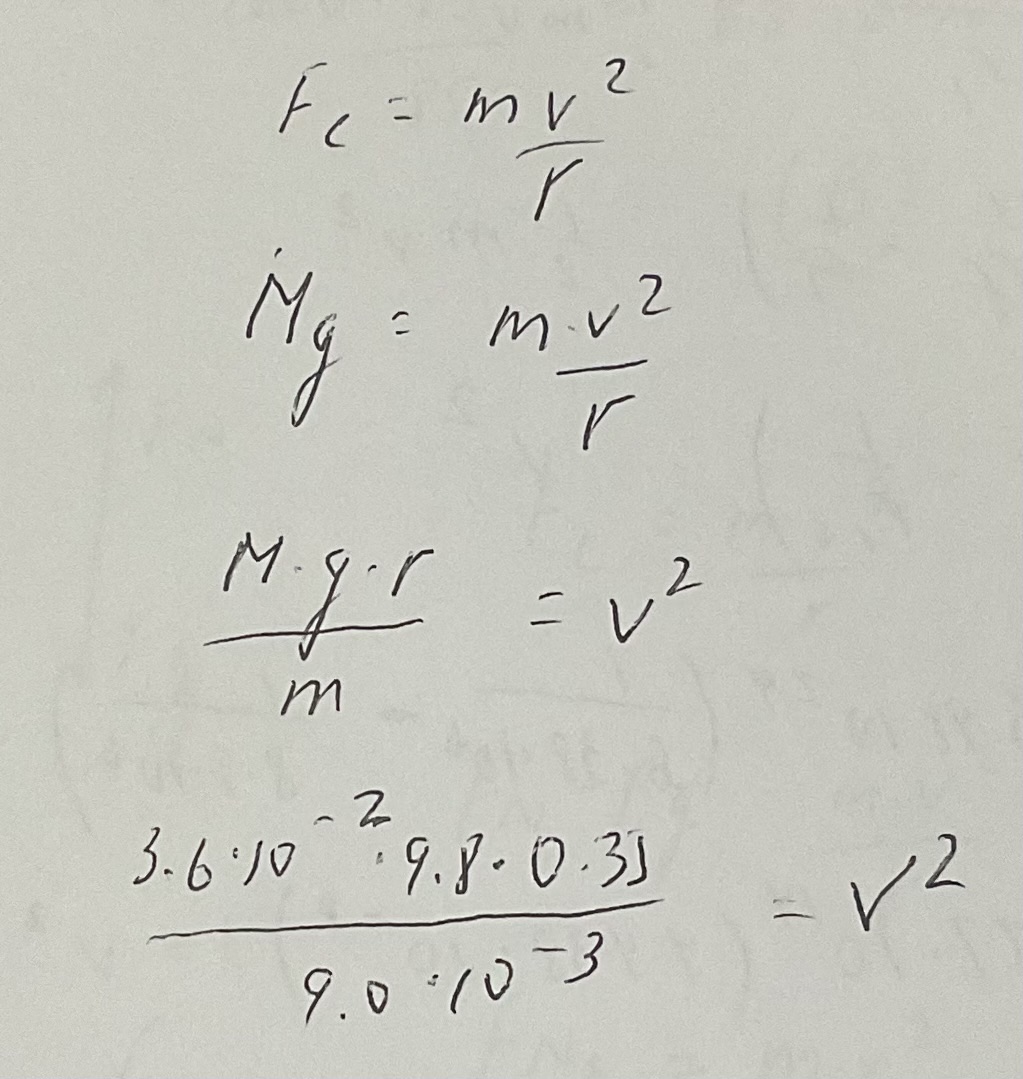 F_c = m v² / r
Mg = m · v² / r
M · g · r / m = v²
3.6 · 10⁻² · 9.8 · 0.35 / 9.0 · 10⁻³ = v²